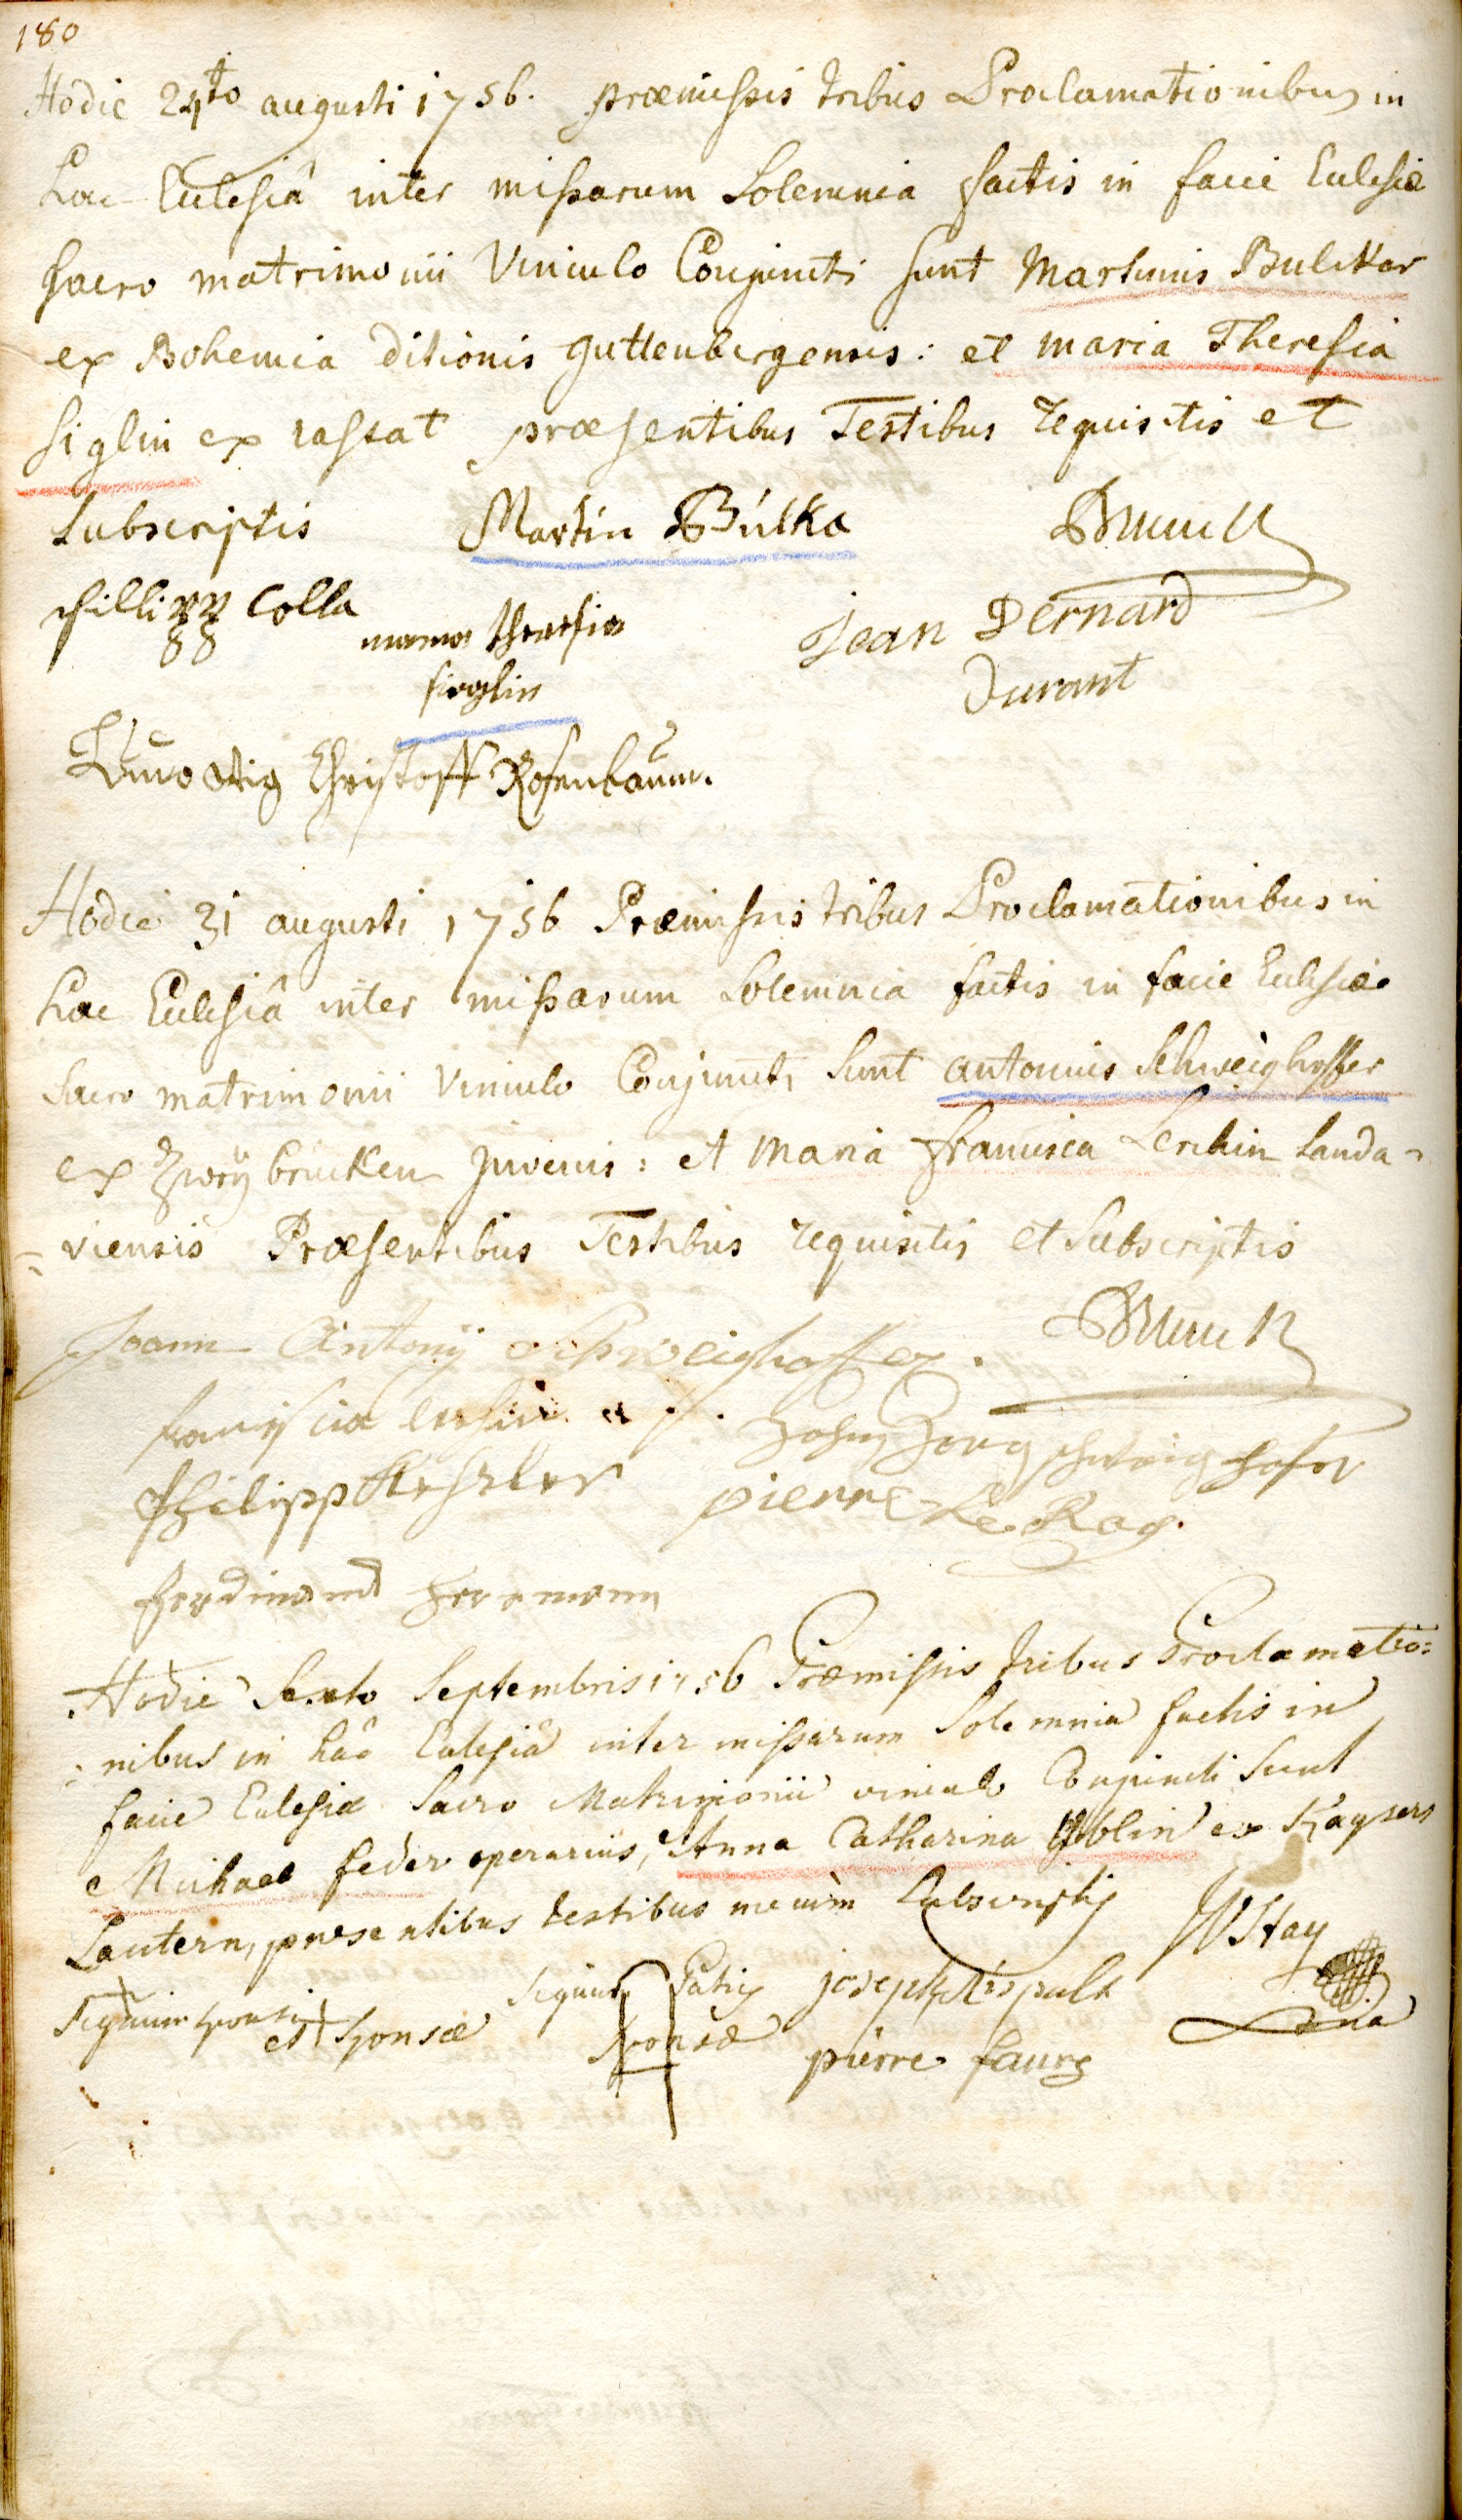 180
Hodie 24to augusti 1756. præmissis tribus Proclamationibus in
hac Ecclesiâ inter missarum Solemnia factis in facie Ecclesiæ
sacro matrimonii Vinculo Conjuncti sunt Martinus Bulckar
ex Bohemia ditionis guttenbergensis: et maria Theresia
siglin ex rastat præsentibus Testibus requisitis et
subscriptis Martin Búlka
Phillipp Colla
maria theresia
sieglin
Jean Bernard
Durant
Ludwig Christoff Rosenbaum.
Hodie 31 augusti 1756 Præmissis tribus Proclamationibus in
hac Ecclesiâ inter missarum Solemnia factis in facie Ecclesiæ
Sacro matrimonii Vinculo Conjuncti Sunt antonius Schweighoffer
ex Zweybrucken juvenis: et Maria francisca Lerchin Landa-
=viensis Præsentibus Testibus requisitis et Subscriptis
Joann Antonÿ Schweighoffer.
Philipp Keszler
pierre Le Roy.
ferdinand herrmann
Hodie Sexto Septembris 1756 Præmissis tribus Proclamatio=
=nibus in hâc Ecclesiâ inter missarum Solemnia factis in
facie Ecclesiæ Sacro Matrimonii vinculo Conjuncti Sunt
Michael feder operarius, et Anna Catharina Göblin ex Kaysers
Lautern, præsentibus testibus mecùm Subscriptis
Signum sponsi
et sponsæ
Signum Patris
sponsæ
joseph
pierre faure
WStay